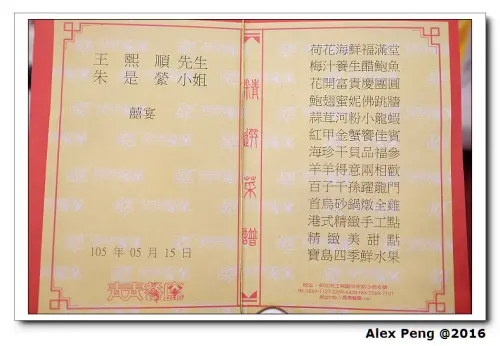 王熙順 先生
朱是縈 小姐
囍宴
105 年 05 月 15 日
精選菜譜
荷花海鮮福滿堂
梅汁養生醋鮑魚
花開富貴慶團圓
鮑翅蜜妮佛跳牆
蒜茸河粉小龍蝦
紅甲金蟹饗佳賓
海珍干貝品福參
羊羊得意兩相歡
百子千孫躍龍門
首烏砂鍋燉全雞
港式精緻手工點
精緻美甜點
寶島四季鮮水果
Alex Peng @2016